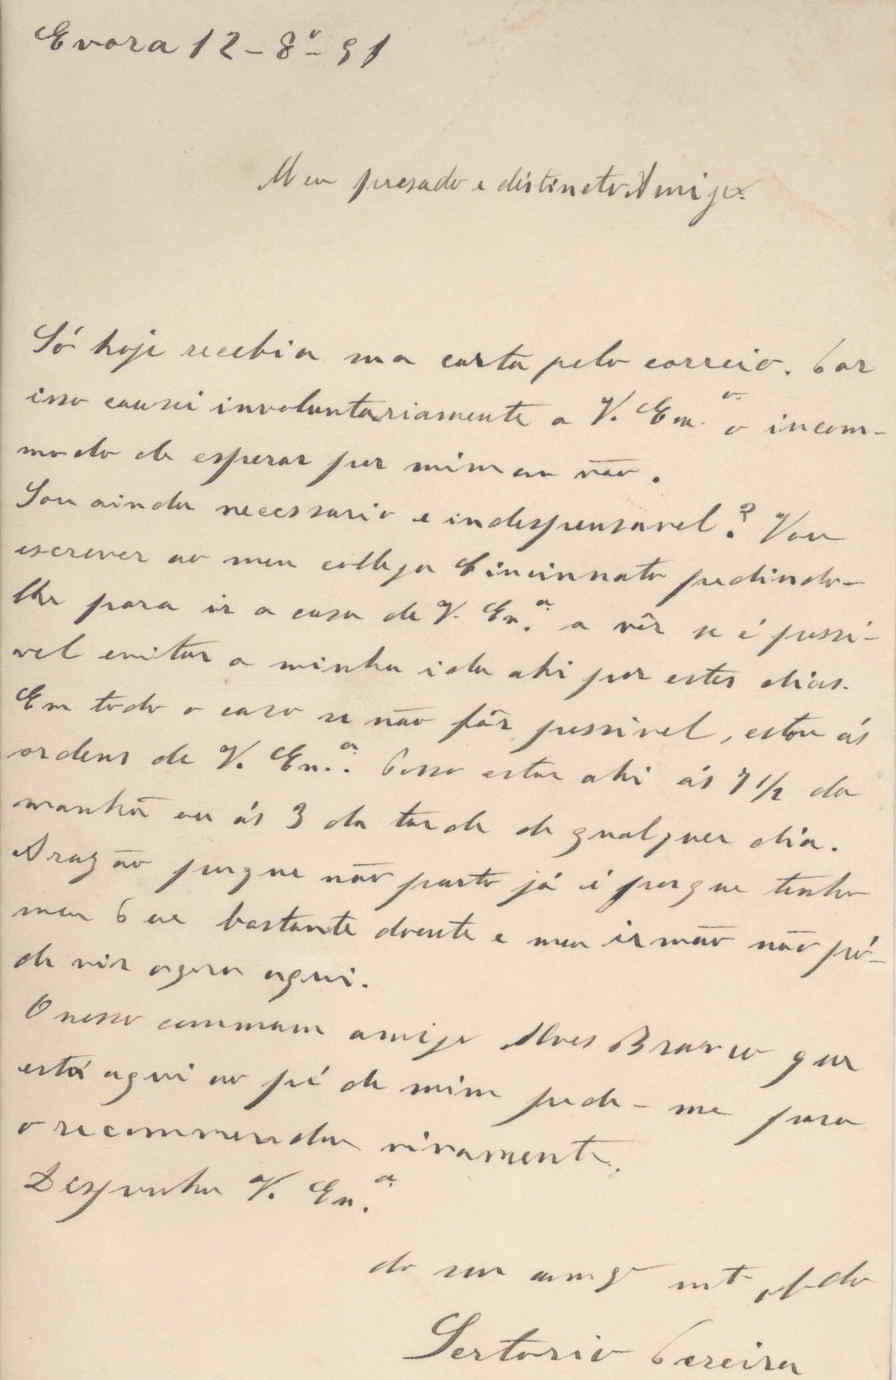 Evora 12-8º-91
Meu presado e distincto Amigo
Só hoje recebi a sua carta pelo correio. Por
isso causei involuntariamente a V. Exª o incom-
modo de esperar por mim em vão.
Sou ainda necessario e indespensavel? Vou
escrever ao meu collega Cincinnato pedindo-
lhe para ir a casa de V. Exª a vêr se é possi-
vel evitar a minha ida ahi por estes dias.
Em todo o caso se não fôr possivel, estou ás
ordens de V. Exª. Posso estar ahi ás 7 1/2 da
manhã ou ás 3 da tarde de qualquer dia.
A razão porque não parto já é porque tenho
meu Pae bastante doente e meu irmão não pó-
de vir agora aqui.
O nosso commum amigo Alves Branco que
está aqui ao pé de mim pede-me para
o recommendar vivamente.
Desponha V. Exª
do seu amgº mtº obdo
Sertorio Pereira